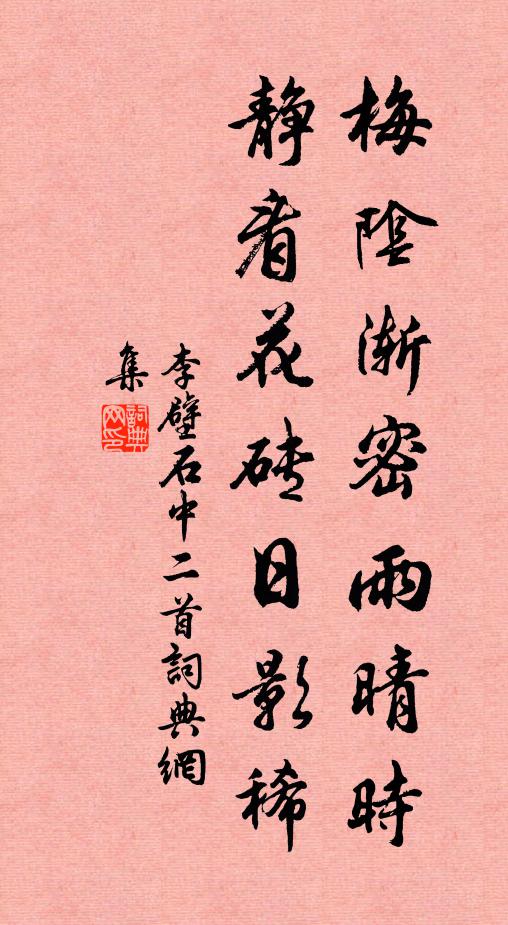 梅陰漸密雨晴時
静看花磚日影稀
李壁石中二首詞典網
集
詞典网印